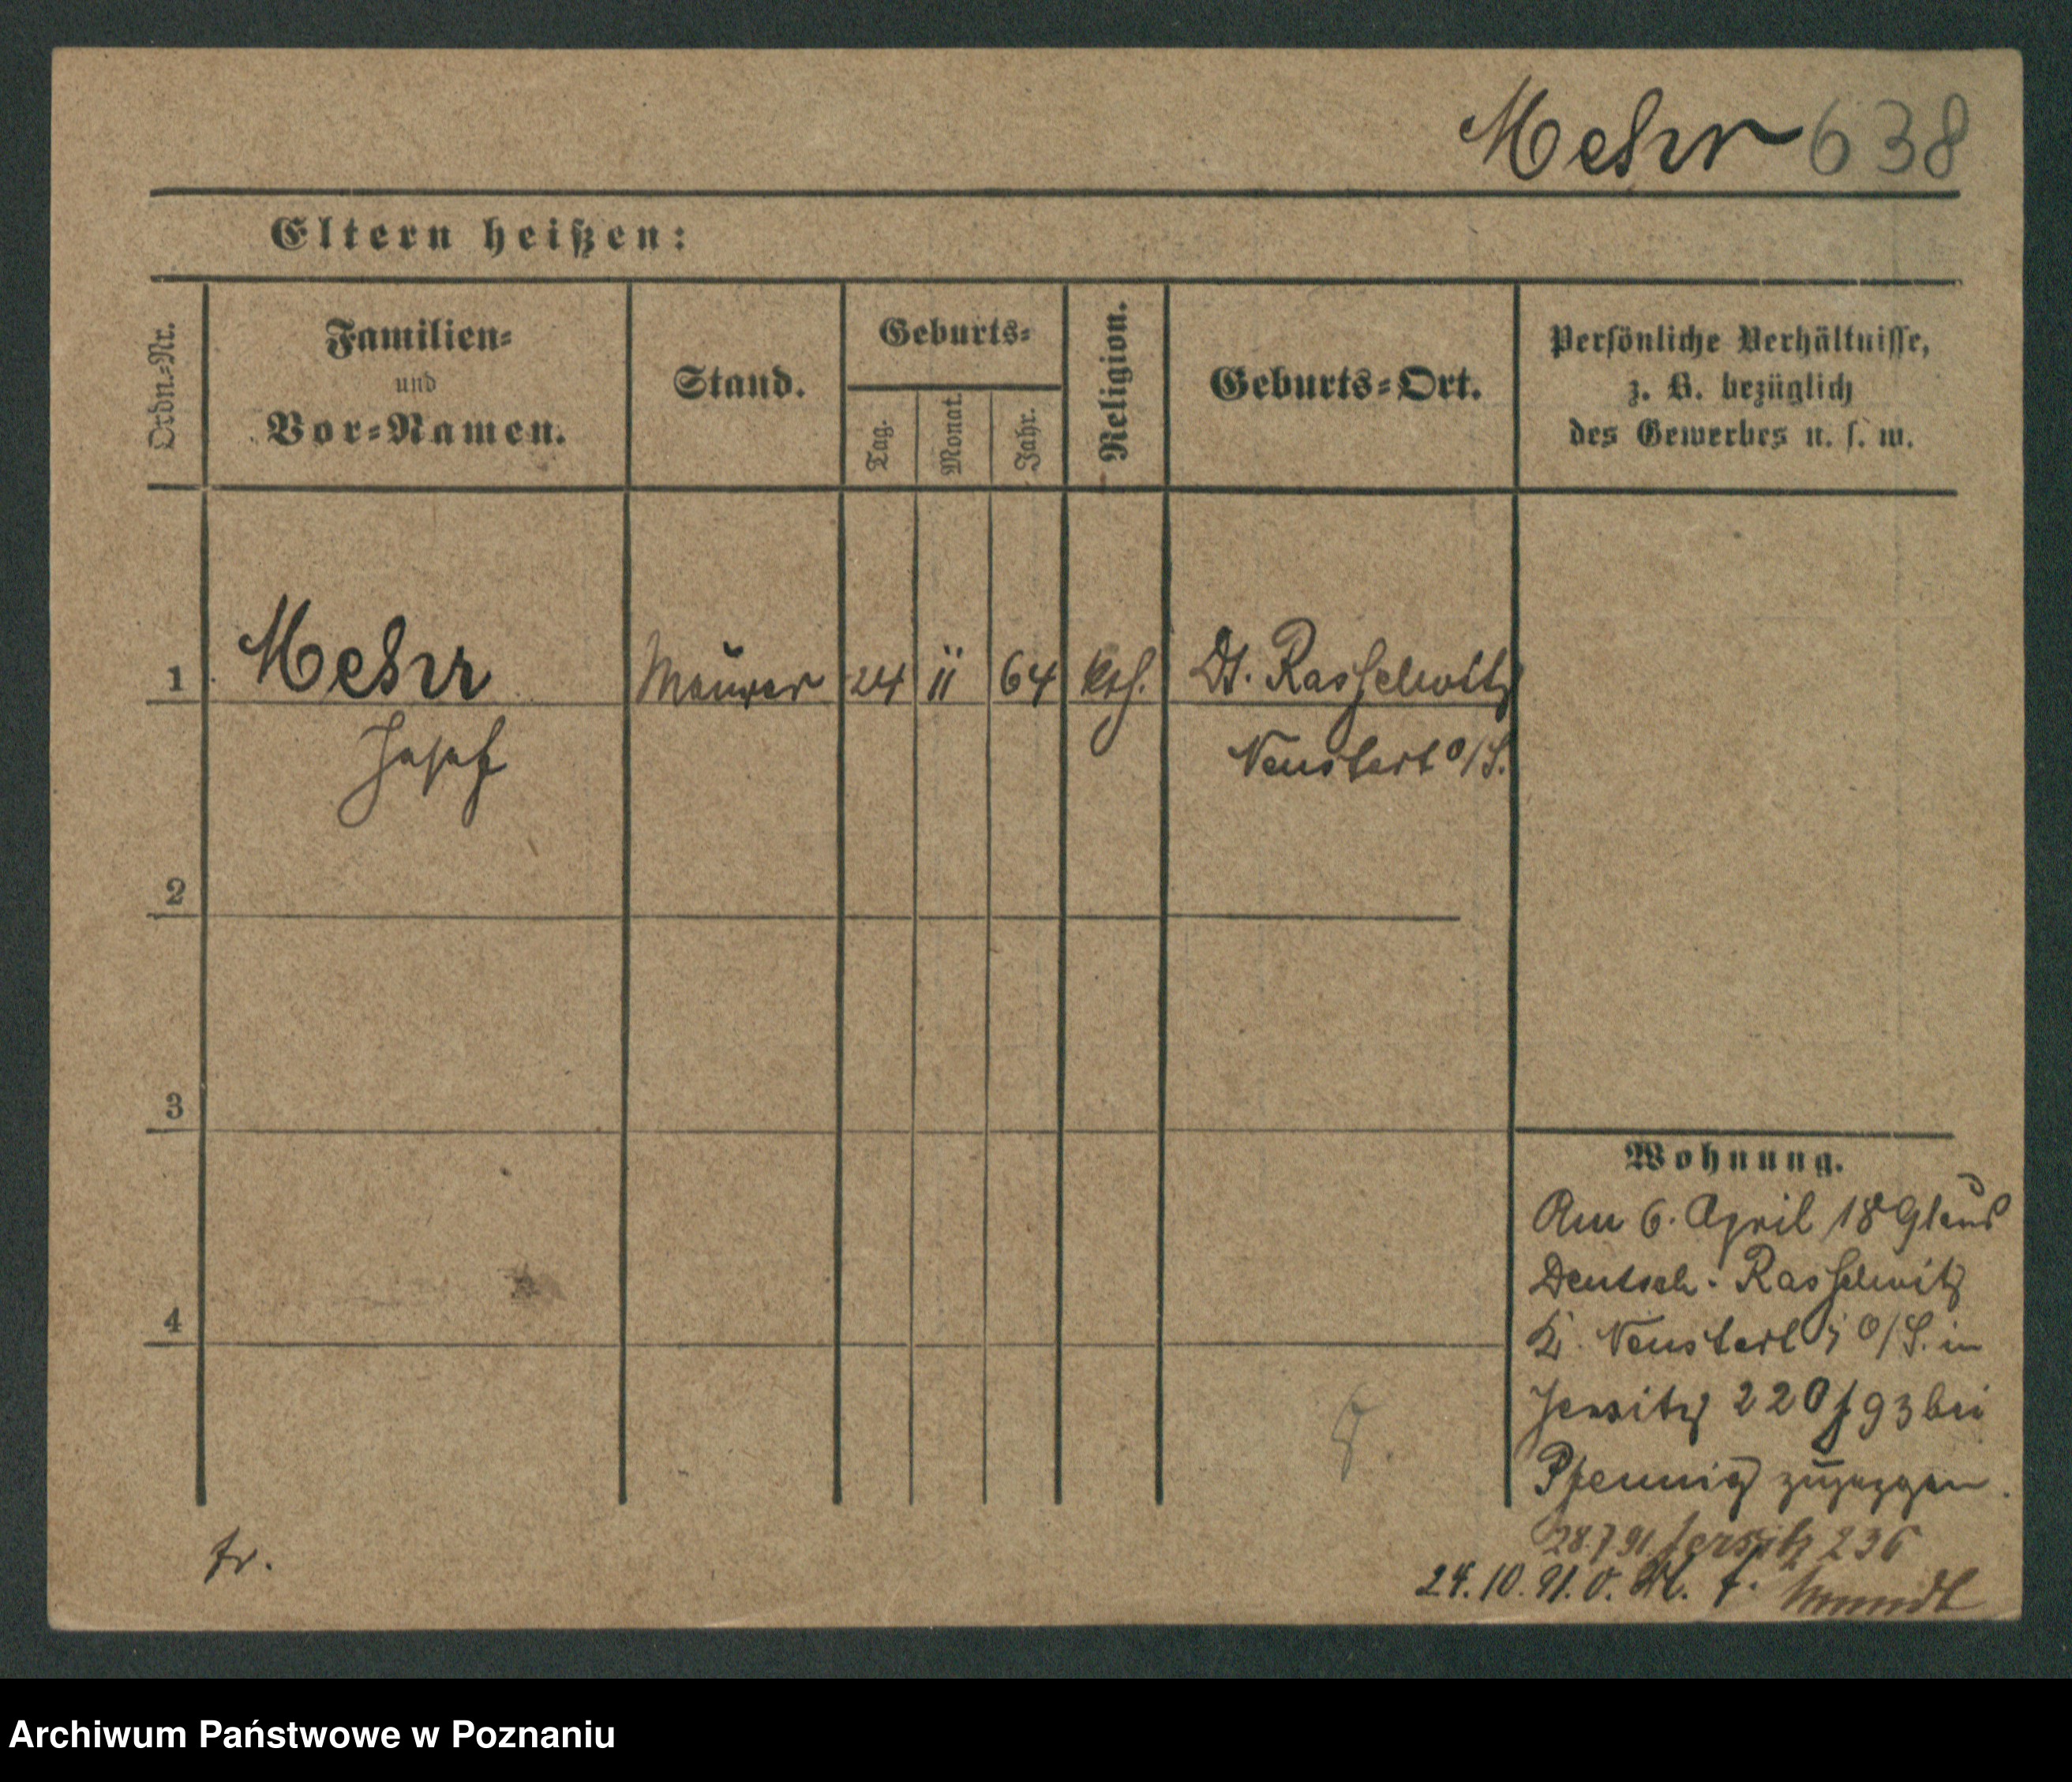 Mehr 638
Eltern heißen:
Ordn.-Nr.
Familien-
und
Vor-Namen.
Stand.
Geburts-
Tag.
Monat.
Jahr.
Religion.
Geburts-Ort.
Persönliche Verhältnisse,
z. B. bezüglich
des Gewerbes u. s. w.
1 Mehr Maurer 24 11 64 kth. Dt. Rasselwitz
Josef Neustadt O/S.
2
3
4
Wohnung.
Am 6. April 1891 aus
Deutsch-Rasselwitz
Kr. Neustadt O/S. in
Jersitz 220 f 93 bei
Pfennig zugezogen.
28.7 91 Jersitz 236
24.10.91. Mundt
fr.
Archiwum Państwowe w Poznaniu